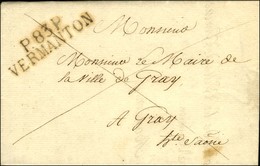 P.83.P.
VERMANTON
Monsieur
Monsieur le Maire de
la ville de Gray
A Gray
hte Saône